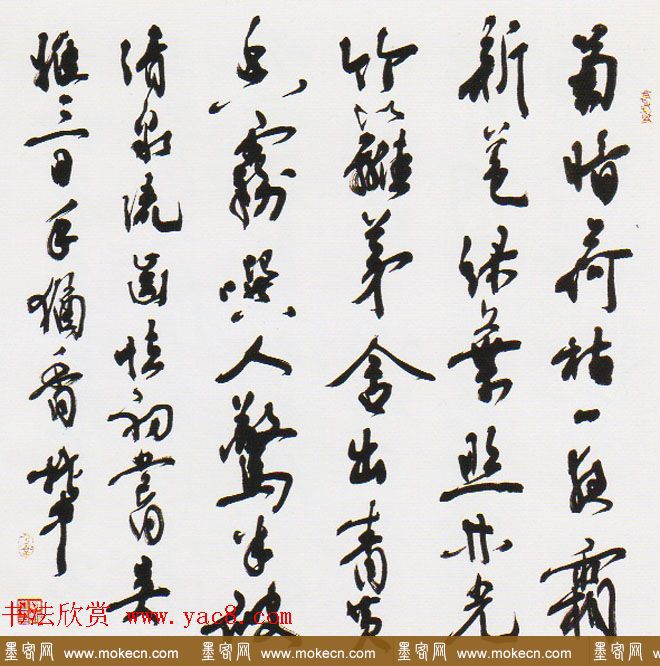 墨客网 www.mokecn.com 墨客网 www.mokecn.com 墨客网 www.mokecn.com
菊暗荷枯一夜霜
新苞绿葉照林光
竹籬茅舍出青黄
香霧噀人驚半破
清泉流齒怯初嘗吴
姬三日手猶香
书法欣赏 www.yac8.com
墨客网 www.mokecn.com 墨客网 www.mokecn.com 墨客网 www.mokecn.com